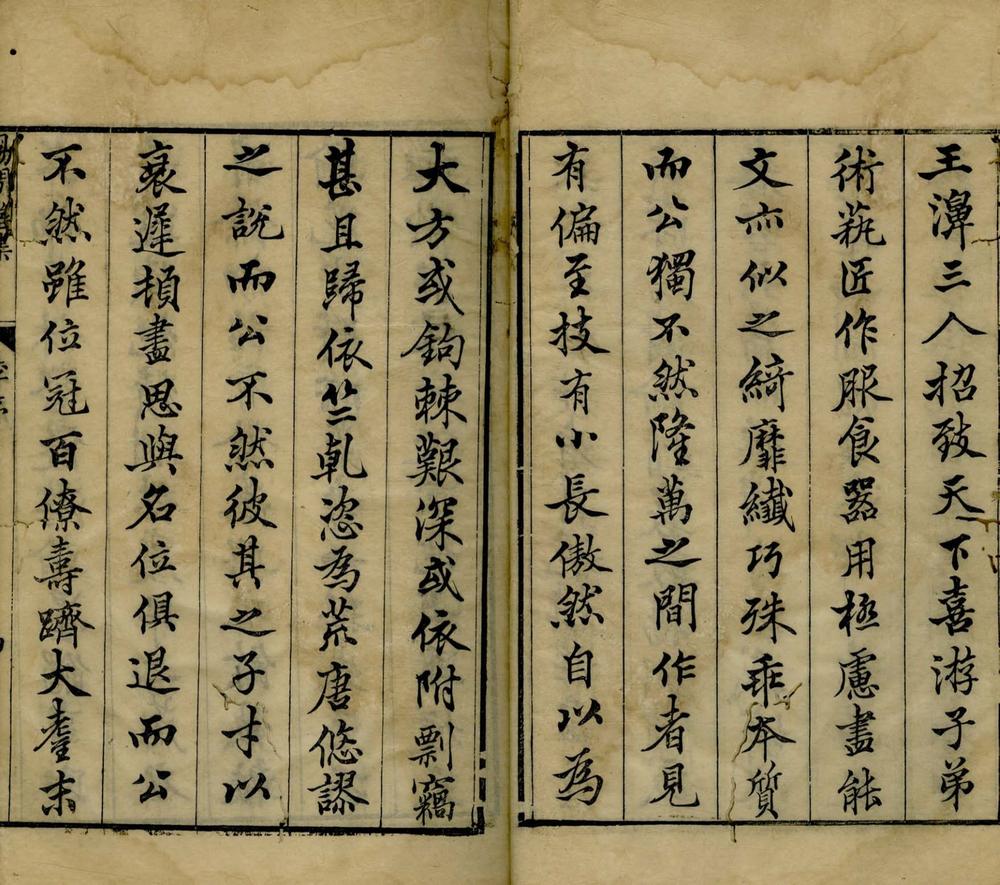 王濞三人招致天下喜游子弟
術蓺匠作服食器用極慮盡能
文亦似之綺靡纖巧殊乖本質
而公獨不然隆萬之間作者見
有偏至技有小長傲然自以為
大方或鉤棘艱深或依附剽竊
甚且歸依竺乾恣為荒唐悠謬
之說而公不然彼其之子才以
衰遲頓盡思與名位俱退而公
不然雖位冠百僚壽躋大耋末